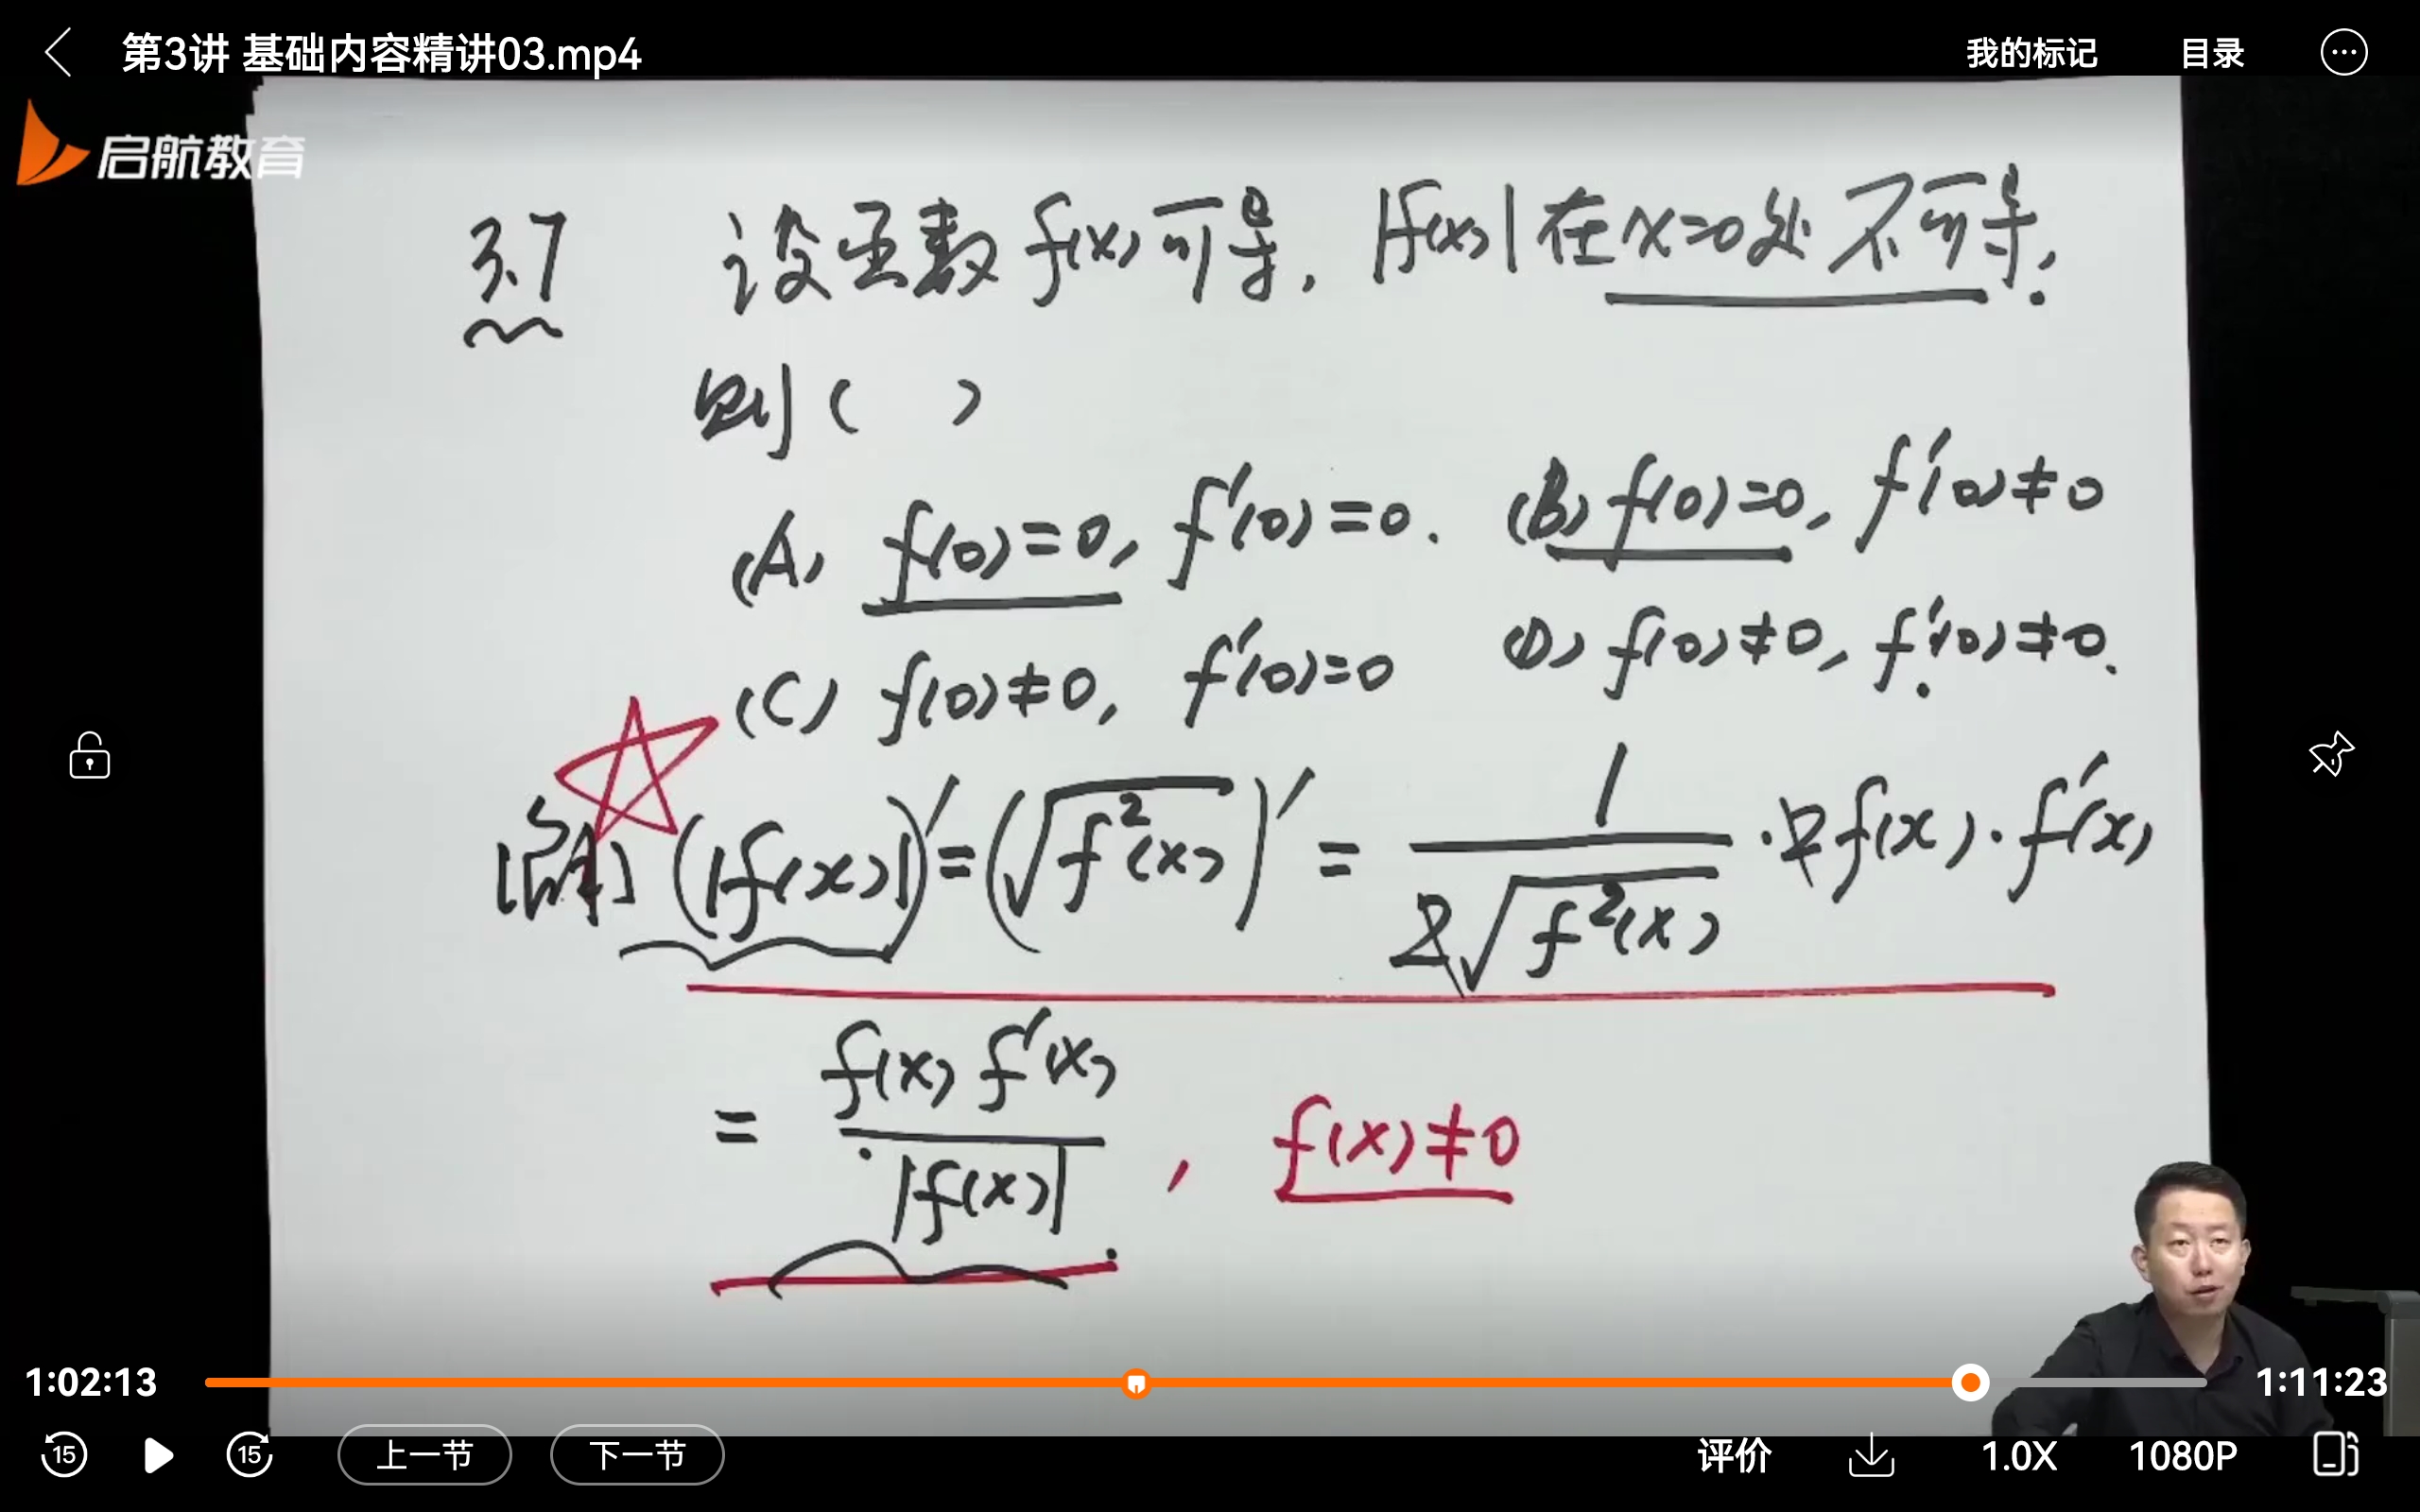 第3讲 基础内容精讲03.mp4
我的标记
目录
启航教育
3.7 设函数f(x)可导, |f(x)|在x=0处不可导,
则( )
(A) f(0)=0, f'(0)=0. (B) f(0)=0, f'(0)≠0
(C) f(0)≠0, f'(0)=0 (D) f(0)≠0, f'(0)≠0.
[解] (|f(x)|)'=(√f²(x))' = 1/(2√f²(x)) · 2f(x) · f'(x)
= f(x)f'(x)/|f(x)| , f(x)≠0
1:02:13
1:11:23
15
15
上一节
下一节
评价
1.0X
1080P